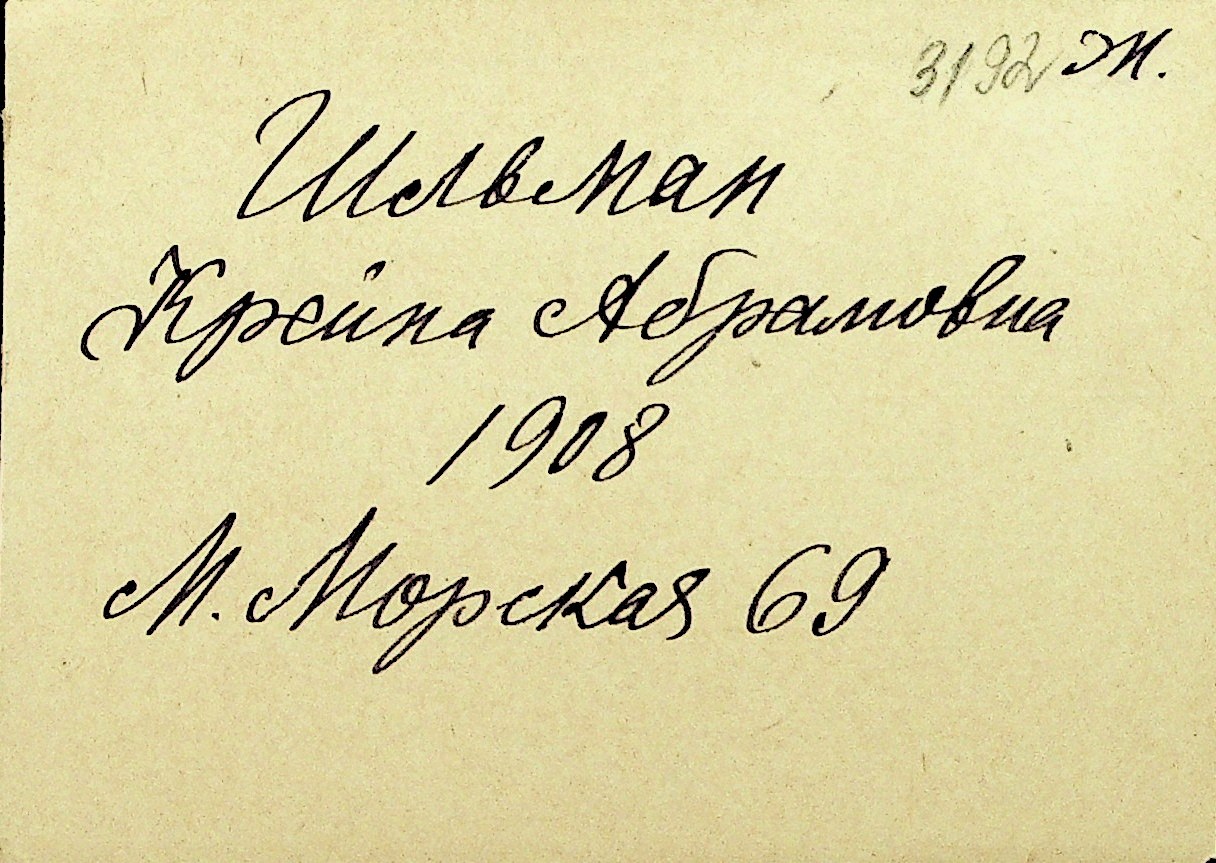 3192 Ж.
Шльман
Крейна Абрамовна
1908
М. Морская 69